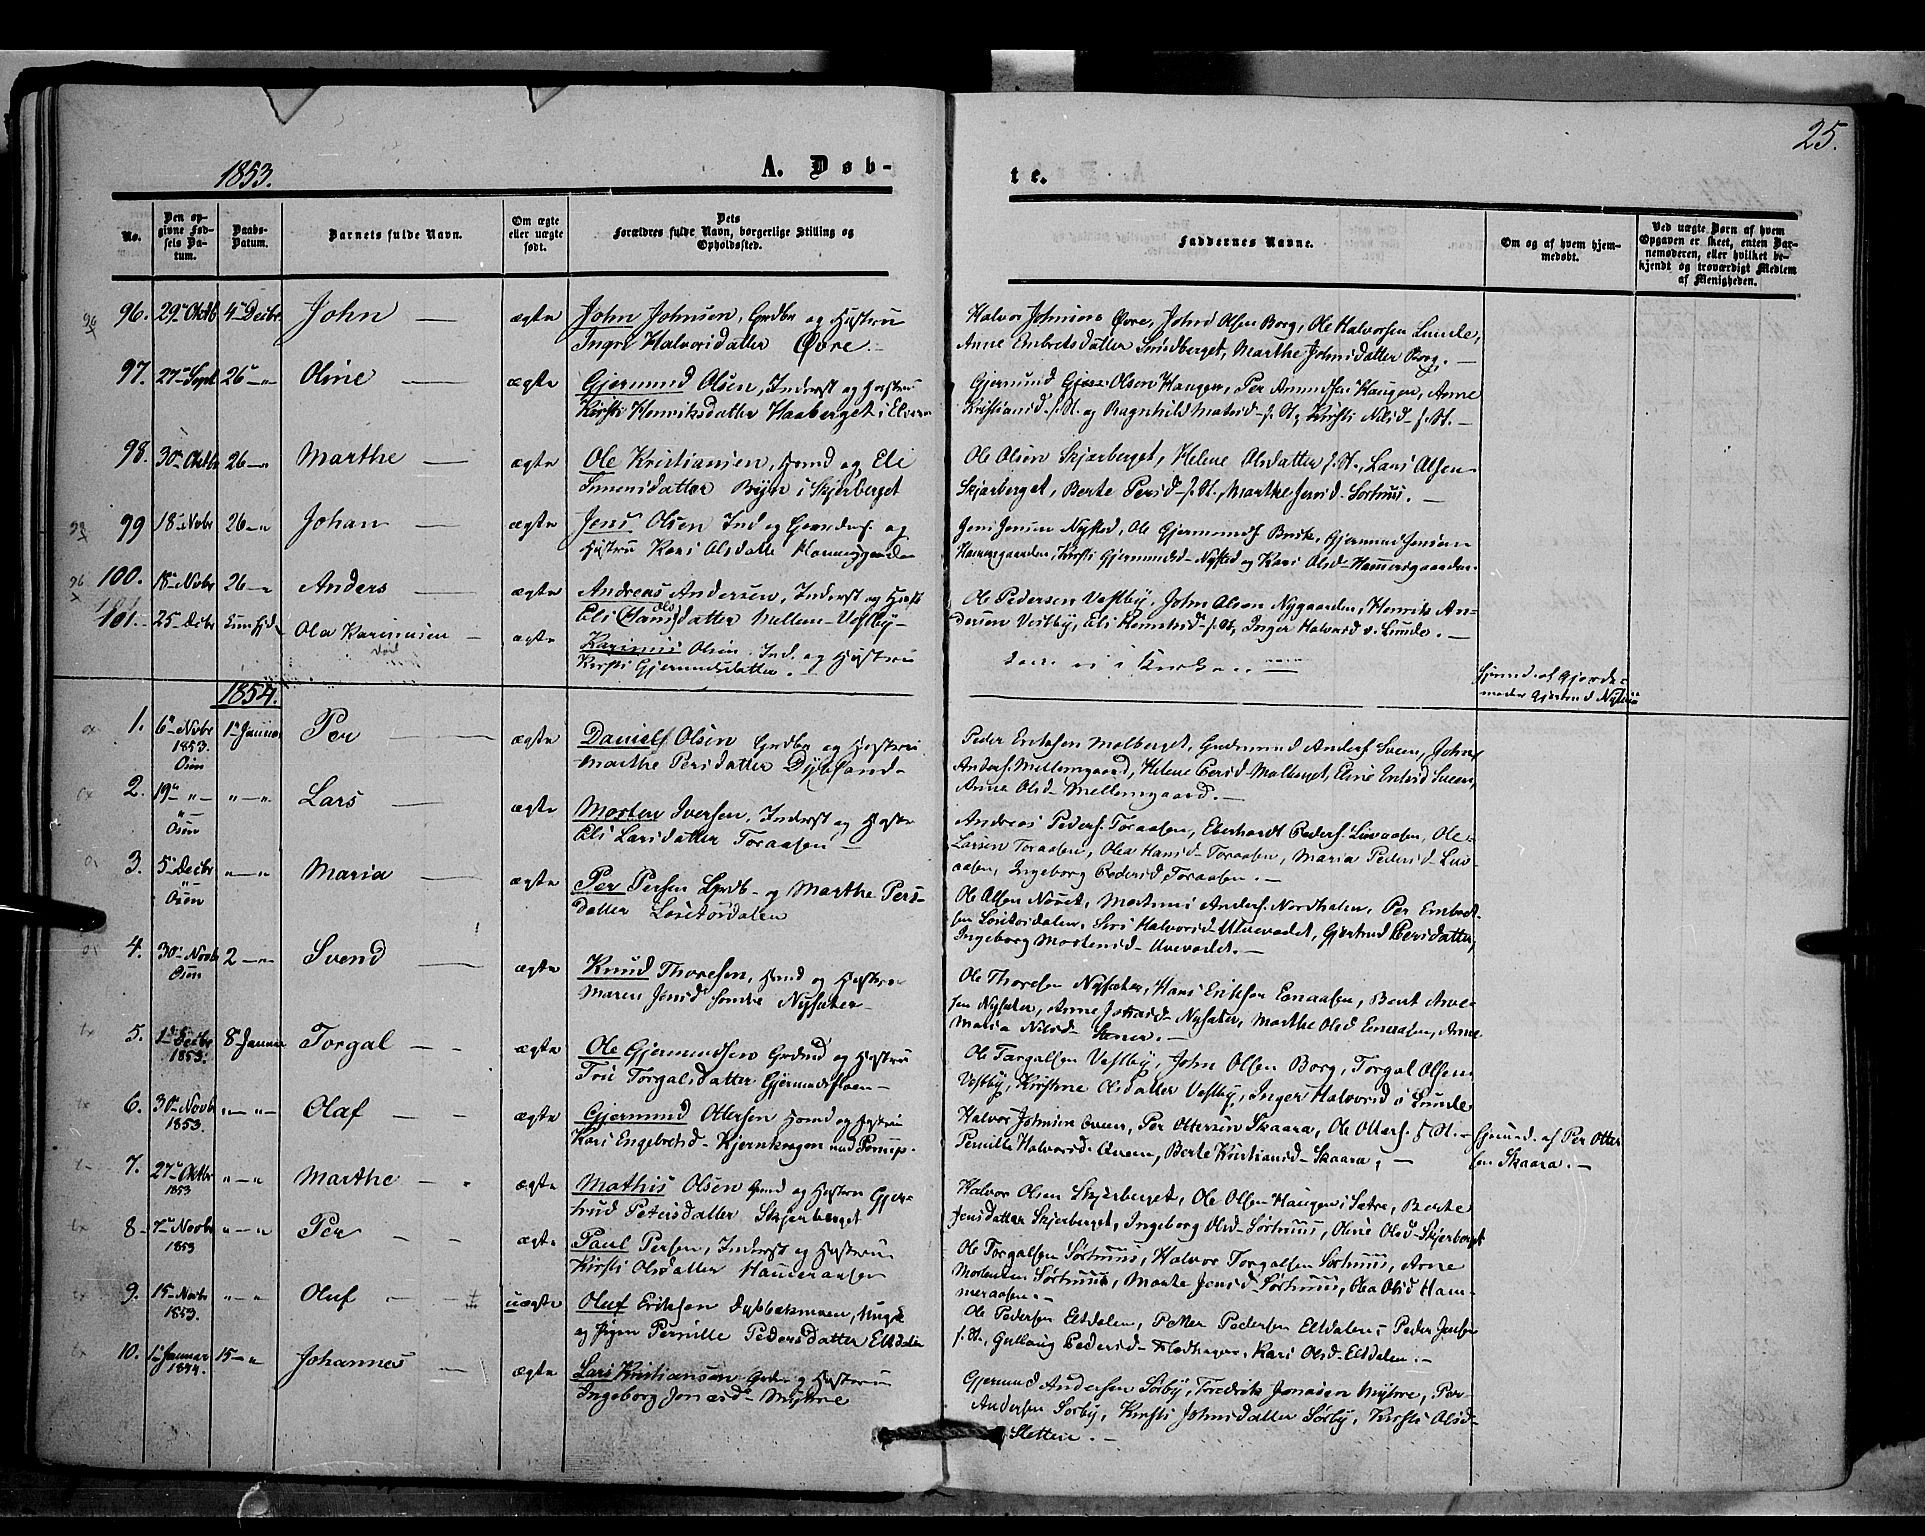 25.
1853.
A. Døb-
te.
No.
Den op-
givne Fød-
sels Da-
tum.
Daabs-
Datum.
Barnets fulde Navn.
Om ægte
eller uægte
født.
Dets
Forældres fulde Navn, borgerlige Stilling og
Opholdssted.
Faddernes Navne.
Om og af hvem hjem-
medøbt.
Ved uægte Børn af hvem
Opgaven er skeet, enten Bar-
nemoderen, eller hvilket be-
kjendt og troværdigt Medlem
af Menigheden.
96. 29 Oktb 4 Decbr John — ægte John Johnsen, Grdbr og Hustru
Ingri Halvorsdatter Øvre.
Halvor Johnsen Øvre, John Olsen Borg, Ole Halvorsen Lunde,
Anne Embretsdatter Sundberget, Marthe Johnsdatter Borg. —
97. 27 Sept 26 — " Oline — ægte Gjermund Olsen, Inderst og Hustru
Kirsti Henriksdatter Haaberget i Elverum
Gjermund Olsen Haugen, Per Amundsen Haugen, Anne
Kristiansd. f. St. og Ragnhild Matsd. f. St, Kirsti Nilsd. f. St. —
98. 30 Oktb 26 — " Marthe — ægte Ole Kristiansen, Hmd og Eli
Simensdatter Byen i Skjerberget
Ole Olsen Skjærberget, Helene Olsdatter f. St., Lars Olsen
Skjærberget, Berte Persd. f. St., Marthe Jensd. Sørhuus. —
99 18 Novbr 26 — " Johan — ægte Jens Olsen Ind og Gaardsf. og
Hustru Kari Olsdatter
Jens Jensen Nysted, Ole Gjermunds. Brusk, Gjermund Jensen
Hammergaarden, Kirsti Gjermundsd. Nysted og Kari Olsd. Hammersgaarden.
100. 18 Novbr 26 — " Anders — ægte Andreas Andersen, Inderst og Hustr
Eli Olsdatter Mellem-Vestby —
Ole Pedersen Vestby, John Olsen Nygaarden, Henrik An-
dersen Vestby, Eli f. St, Inger Halvorsd v. Lunde. —
101. 25 Decbr Ole Karinusen — ægte Karinus Olsen Ind. og Hustru
Kirsti Gjermundsdatter.
død
af Gjorde-
moder Gjertrud
1854.
1. 6 Novbr 1 Januar Per — ægte Daniel Olsen Grdbr og Hustru
1853.
Osen
Marthe Persdatter
Peder Eriksen Malberget, Gudmund Anders. Sveen, John
Anders. Mellemgaard, Helene Persd. Malberget, Eline Embrsd Sveen,
Anne Olsd. Mellemgaard. —
2. 19 — " — " — " Lars — ægte Morten Iversen, Inderst og Hustru
Osen
Eli Larsdatter Toraasen —
Andreas Peders. Toraasen, Eberhardt Peders. Løvaasen, Ole
Larsen Toraasen, Olea Hansd. Toraasen, Maria Pedersd. Løv-
aasen, Ingeborg Pedersd. Toraasen. —
3. 5 Decbr " — " Maria — ægte Per Persen Grdb. og Marthe Pers-
Osen
datter Løsetosdalen
Ole Olsen Næset, Martinus Anders. Nordhalen, Per Embret-
sen Løsetosdalen, Siri Halvorsd. Ulvevadet, Gjertrud Persdatter,
Ingeborg Mortensd. Ulvevadet. —
4. 30 Novbr 2 — " Svend — ægte Knud Thoresen, Hmd og Hustru
Osen
Maren Jensd. søndre Nysæter —
Ole Thoresen Nysæter, Hans Eriksen Enaasen, Bent Arne-
sen Nysæter, Anne Nysæter, Marthe Olsd Eneaasen, Anne
Maria Nilsd. Stener. —
5. 1 Decbr 8 Januar Torgal — ægte Ole Gjermundsen Grdmd og Hustru
1853.
Siri Torgalsdatter Gjermundsfloen —
Ole Torgalsen Vestby, John Olsen Borg, Torgal Olsen
Vestby, Kirstine Olsdatter Vestby, Inger Halvorsd i Lunde
6. 30 Novbr " — " Olaf — ægte Gjermund Ottersen Hmd og Hustru
1853.
Kari Engebretsd. Kjernkragen
Halvor Johnsen Qveen, Per Ottersen Skaara, Ole Otters. f. St. —
Pernille Halvorsd. Qveen, Berte Kristiansd. Skaara, —
af Per Otter
sen Skaara. —
7. 27 Oktbr " — " Marthe — ægte Mathis Olsen Hmd og Hustru Gjer-
1853
trud Petersdatter Skjerberget
Halvor Olsen Skjerberget, Ole Olsen Haugen i Sætre, Berte
Jensdatter Skjerberget, Ingeborg Olsd. Sørhuus, Oline Olsd. Skjerberget
8 7 Novbr " — " Per — ægte Paul Persen, Inderst og Hustru
1853
Kirsti Olsdatter Hammeraasen
Ole Torgalsen Sørhuus, Halvor Torgalsen Sørhuus, Arne
Mortensen Sørhuus, Marte Jensd. Sørhuus, Olea Olsd Ham-
meraasen. —
9. 15 Novbr " — " Oluf — uægte Oluf Eriksen Dysbaksmoen, Ungk
1853.
og Pigen Pernille Pedersdatter Eltdalen
Ole Pedersen Eltdalen, Petter Pedersen Eltdalen, Peder Jensen
f. St., Gullaug Pedersd. Flodhagen, Kari Olsd. Eltdalen. —
10. 1 Januar 15 — " Johannes — ægte Lars Kristiansen og Hustru
1854.
Ingeborg Jonasd. Myhre
Gjermund Andersen Sörby, Fredrik Jonasen Myhre, Per
Andersen Sörby, Kirsti Johnsdatter Sörby, Kirsti Olsd.
Sletten. —